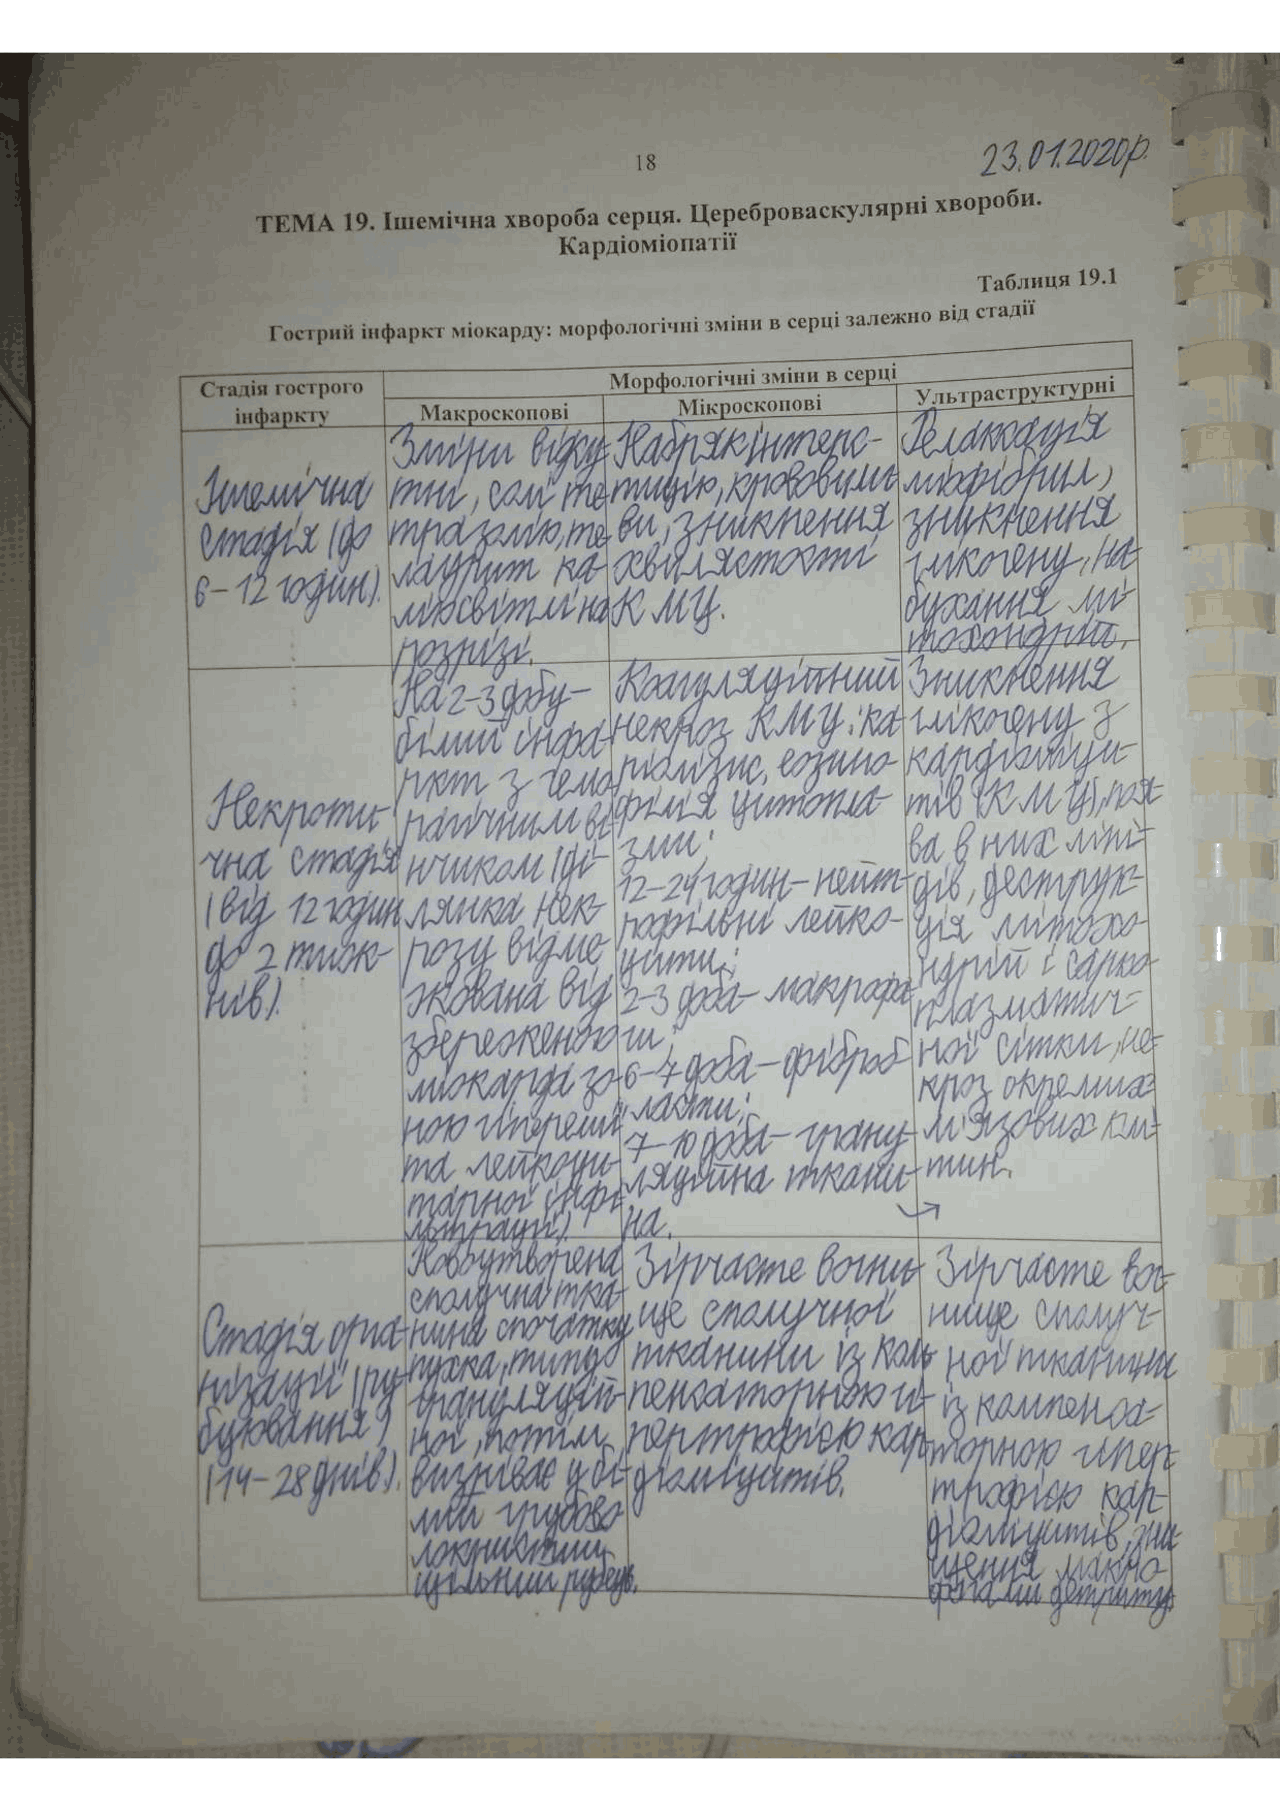 18
23.01.2020р.
ТЕМА 19. Ішемічна хвороба серця. Цереброваскулярні хвороби.
Кардіоміопатії
Таблиця 19.1
Гострий інфаркт міокарду: морфологічні зміни в серці залежно від стадії
Стадія гострого
інфаркту
Морфологічні зміни в серці
Макроскопові
Мікроскопові
Ультраструктурні
Ішемічна
стадія (до
6-12 годин).
Зміни відсу
тні, солі те
тразолію, те
лурит ка
лію світлі на
розрізі.
Набряк інтерс-
тицію, крововили-
ви, зникнення
хвилястості
КМЦ.
Релаксація
міофібрил,
зникнення
глікогену, на-
бухання мі-
тохондрій.
Некроти-
чна стадія
(від 12 годин
до 2 тиж-
нів).
На 2-3 добу-
білий інфа-
ркт з гемо
рагічним ві
нчиком (ді-
лянка нек-
розу відме
жована від
збереженого
міокарда зо-
ною гіперемії
та лейкоци-
тарної інфі-
льтрації).
Коагуляційний
некроз КМЦ: ка-
ріолізис, еозино
філія цитопла-
зми;
12-24 годин - нейт-
рофільні лейко-
цити;
2-3 доба - макрофа-
ги;
6-7 доба - фіброб-
ласти;
7-10 доба - грану-
ляційна ткани-
на.
Зникнення
глікогену з
кардіоміоци-
тів (КМЦ), поя-
ва в них ліпі-
дів, деструк-
ція мітохо-
ндрій і сарко-
плазматич-
ної сітки, не-
кроз окремих
м'язових клі-
тин.
Стадія орга-
нізації (ру-
бцювання)
(14-28 днів).
Новоутворена
сполучна тка-
нина спочатку
пухка, типу
грануляцій-
ної, потім
визріває у бі-
лий грубово
локнистий
щільний рубець.
Зірчасте вогни-
ще сполучної
тканини із ком-
пенсаторною гі-
пертрофією кар-
діоміоцитів.
Зірчасте вог-
нище сполуч-
ної тканини
із компенса-
торною гіпер-
трофією кар-
діоміоцитів, зни-
щення макро-
фагами детриту.